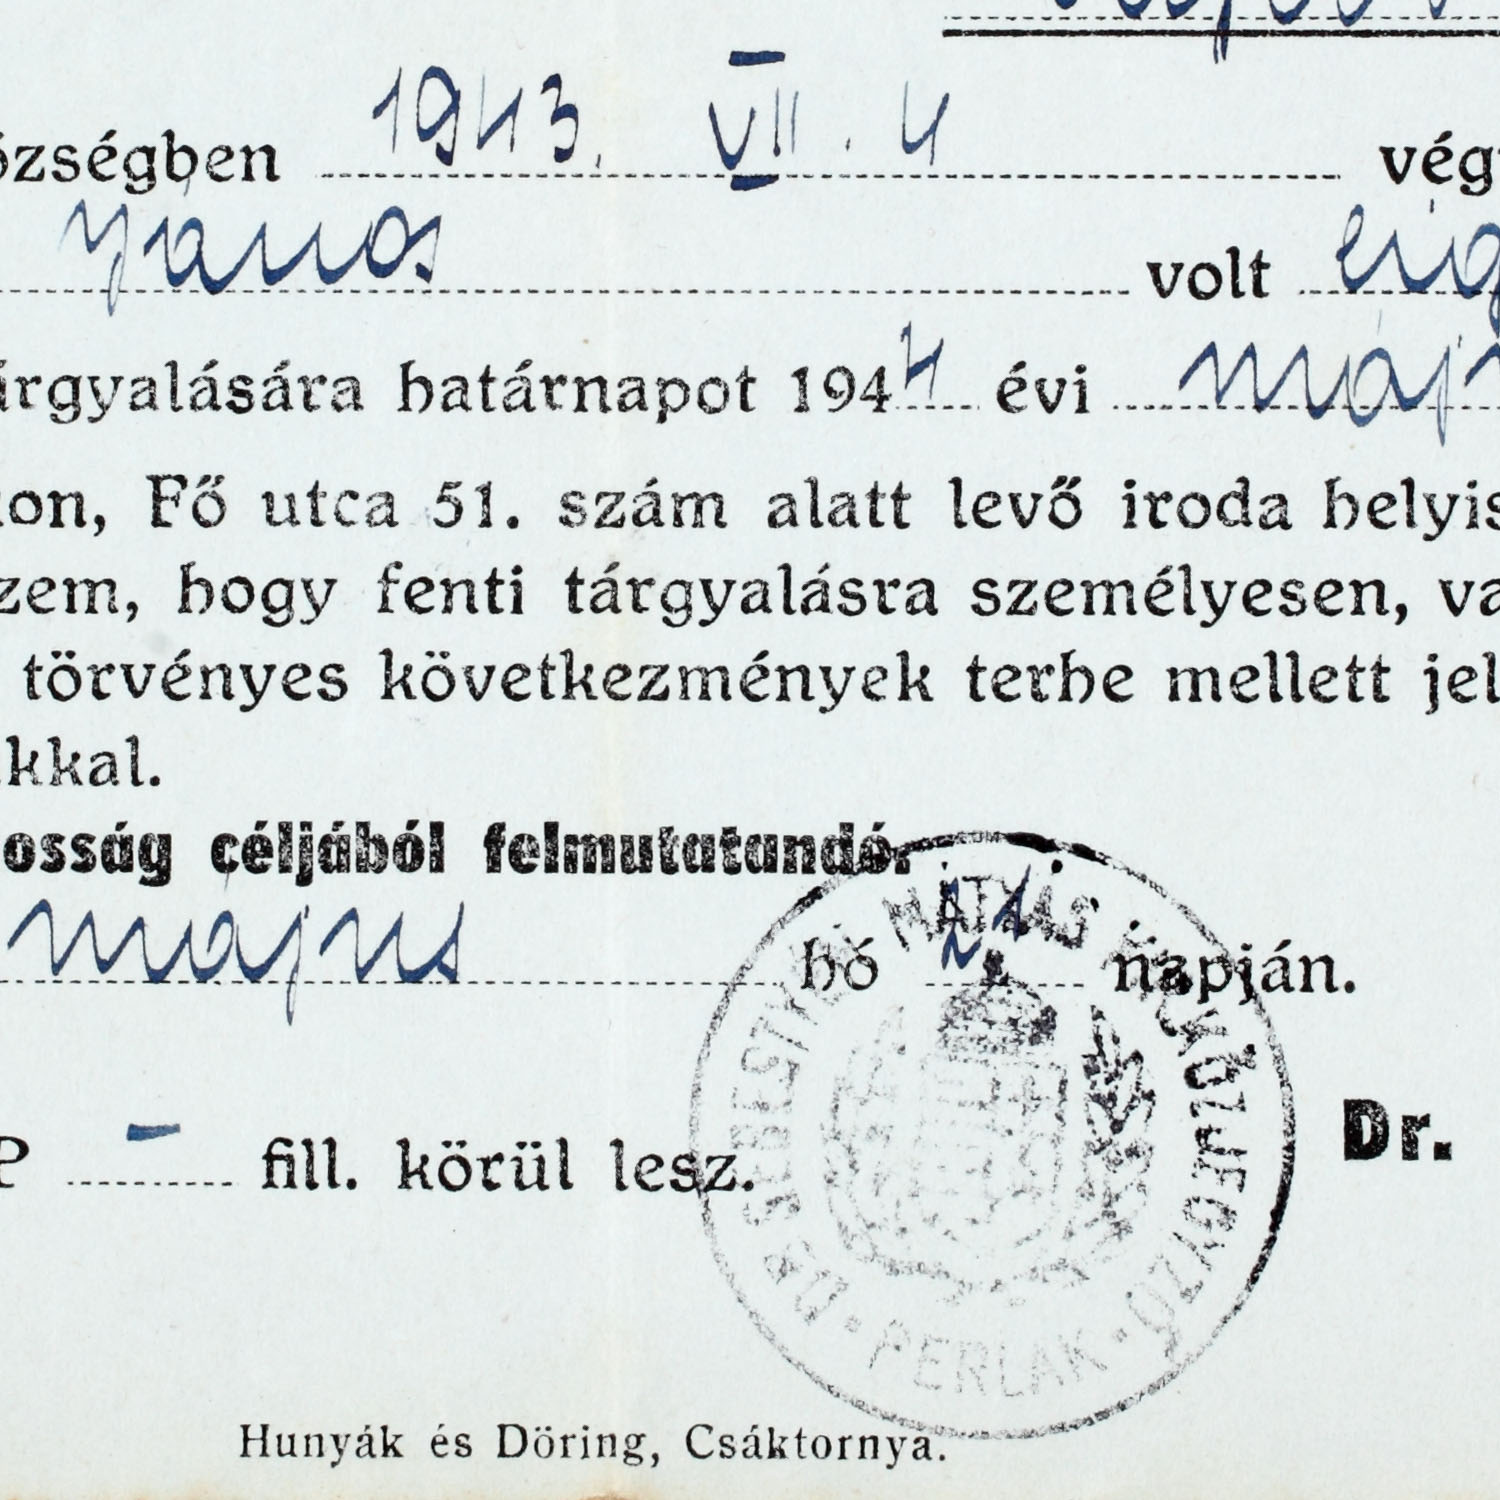 özségben 1943. VII. 4 vég
János volt
árgyalására határnapot 1944 évi máj
kon, Fő utca 51. szám alatt levő iroda helyis
zem, hogy fenti tárgyalásra személyesen, va
törvényes következmények terhe mellett jel
akkal.
osság céljából felmutatandó.
majus hó napján.
P – fill. körül lesz.
Dr.
DR. SEBESTYÉN MÁTYÁS KIR. KÖZJEGYZŐ • PERLAK •
Hunyák és Döring, Csáktornya.